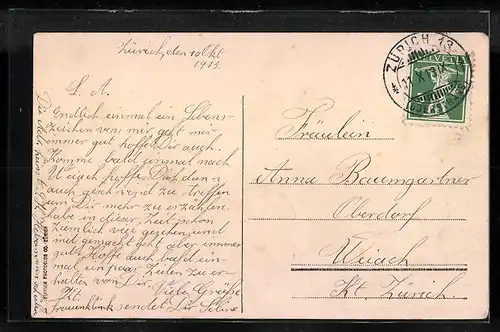 Zürich, den 10 Okt
1913.
L. A.
Endlich einmal ein Lebens-
zeichen von mir, geht mir
immer gut hoffe Dir auch.
Komme bald einmal nach
Weiach hoffe Dich dann
auch geschwind zu treffen
um Dir mehr zu erzählen
habe in dieser Zeit schon
ziemlich viel gesehen und
mit gemacht geht aber immer
gut. Hoffe auch bald ein-
mal ein paar Zeilen zu er-
halten von Dir. Viele Grüsse
sendet Dir
Fräulein
Anna Baumgartner
Oberdorf
Weiach
Kt. Zürich.
ZÜRICH 13
HELVETIA